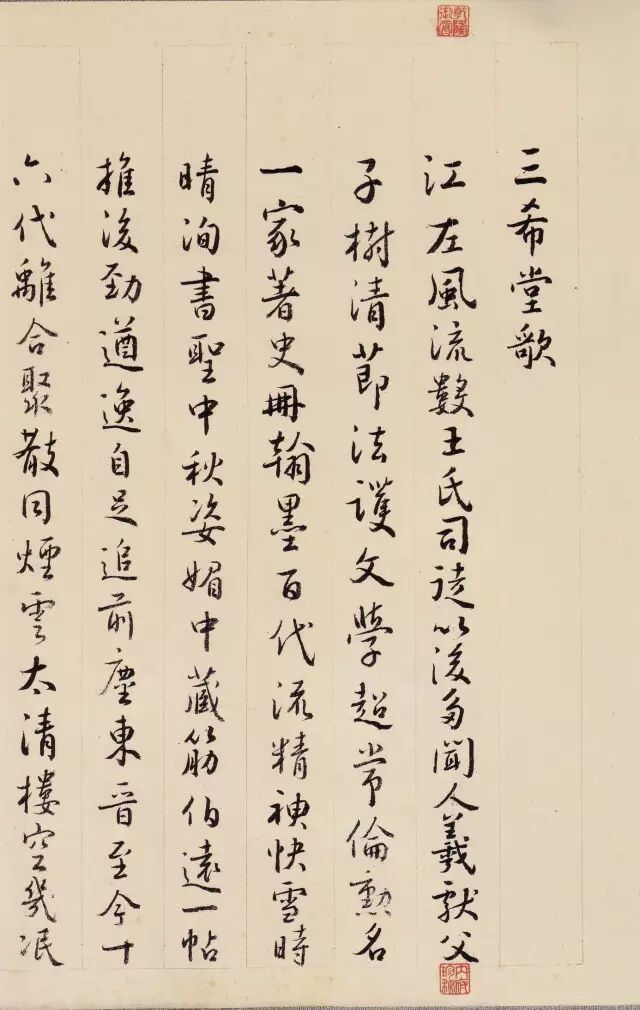 三希堂歌
江左風流數王氏司徒以後多聞人羲獻父
子樹清節法護文學超常倫勲名
一家著史冊翰墨百代流精神快雪時
晴洵書聖中秋姿媚中藏筋伯遠一帖
推峻勁遒逸自足追前塵東晉至今十
六代離合聚散同煙雲太清樓空幾泯
乾隆御賞
內府珍秘